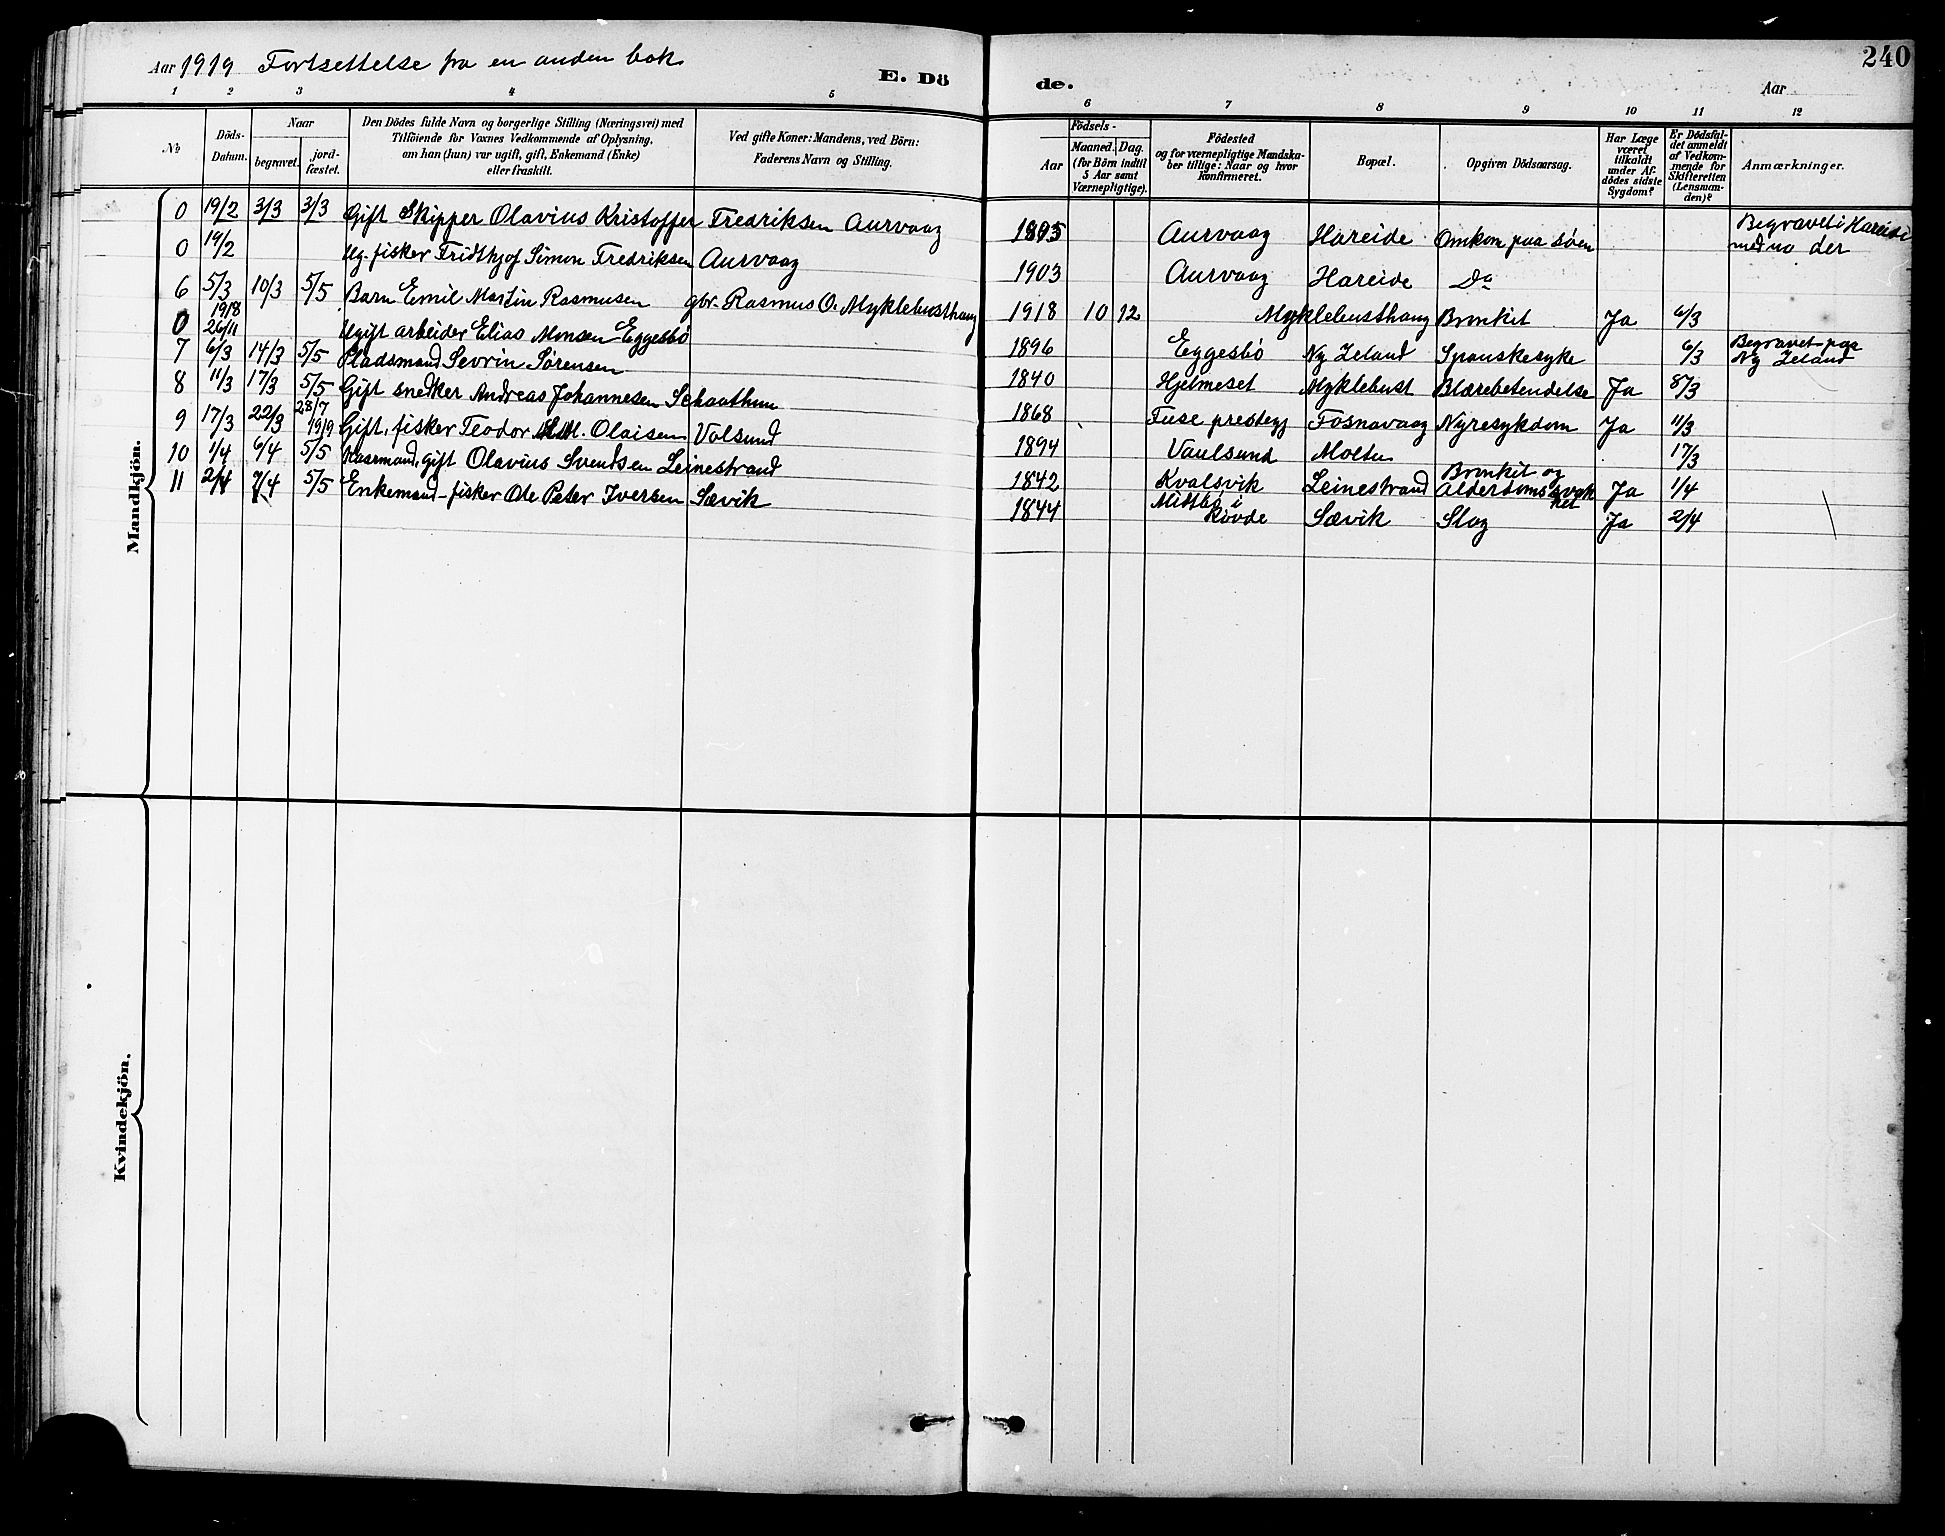 240
Aar 1919 Fortsettelse fra en anden bok
E. Dö de.
Aar
1 2 3 4 5 6 7 8 9 10 11 12
No
Döds-Datum.
Naar
begravet.
jord-fæstet.
Den Dödes fulde Navn og borgerlige Stilling (Næringsvei) med
Tilföiende for Voxnes Vedkommende af Oplysning,
om han (hun) var ugift, gift, Enkemand (Enke)
eller fraskilt.
Ved gifte Koner: Mandens, ved Börn:
Faderens Navn og Stilling.
Födsels-
Aar
Maaned. Dag.
(for Börn indtil
5 Aar samt
Værnepligtige).
Födested
og for værnepligtige Mandska-
ber tillige: Naar og hvor
konfirmeret.
Bopæl.
Opgiven Dödsaarsag.
Har Læge
været
tilkaldt
under Af-
dödes sidste
Sygdom?
Er Dödsfal-
det anmeldt
af Vedkom-
mende for
Skifteretten
(Lensman-
den)?
Anmærkninger.
Mandkjön.
0 19/2 3/3 3/3 Gift Skipper Olavius Kristoffer Fredriksen Aurvaag 1895 Aurvaag Hareide Omkom paa søen Begravet i Hareide
med no der
0 19/2 Ug. fisker Fridthjof Simon Fredriksen Aurvaag 1903 Aurvaag Hareide Do
6 5/3 10/3 5/5 Barn Emil Martin Rasmusen gbr. Rasmus O. Myklebusthaug 1918 10 12 Myklebusthaug Bronkit Ja 6/3
0 1918 26/11 Ugift arbeider Elias Monsen Eggesbö 1896 Eggesbö Ny Zeland Spanskesyke 6/3 Begravet paa
Ny Zeland
7 6/3 14/3 5/5 Pladsmand Sevrin Sørensen 1840 Hjelmeset Myklebust Blærebetendelse Ja 8/3
8 11/3 17/3 5/5 Gift snedker Andreas Johannesen Schaathun 1868 Fuse prestegj Fosnavaag Nyresykdom Ja 11/3
9 17/3 22/3 28/7 1919 Gift, fisker Teodor M. Olaisen Volsund 1894 Vaulsund Moltu 17/3
10 1/4 6/4 5/5 Kaarmand, gift Olavius Svendsen Leinestrand 1842 Kvalsvik Leinestrand Bronkit og
Alderdomssvakhet Ja 1/4
11 2/4 7/4 5/5 Enkemand - fisker Ole Peter Iversen Sævik 1844 i
Rövde Sævik Slag Ja 2/4
Kvindekjön.